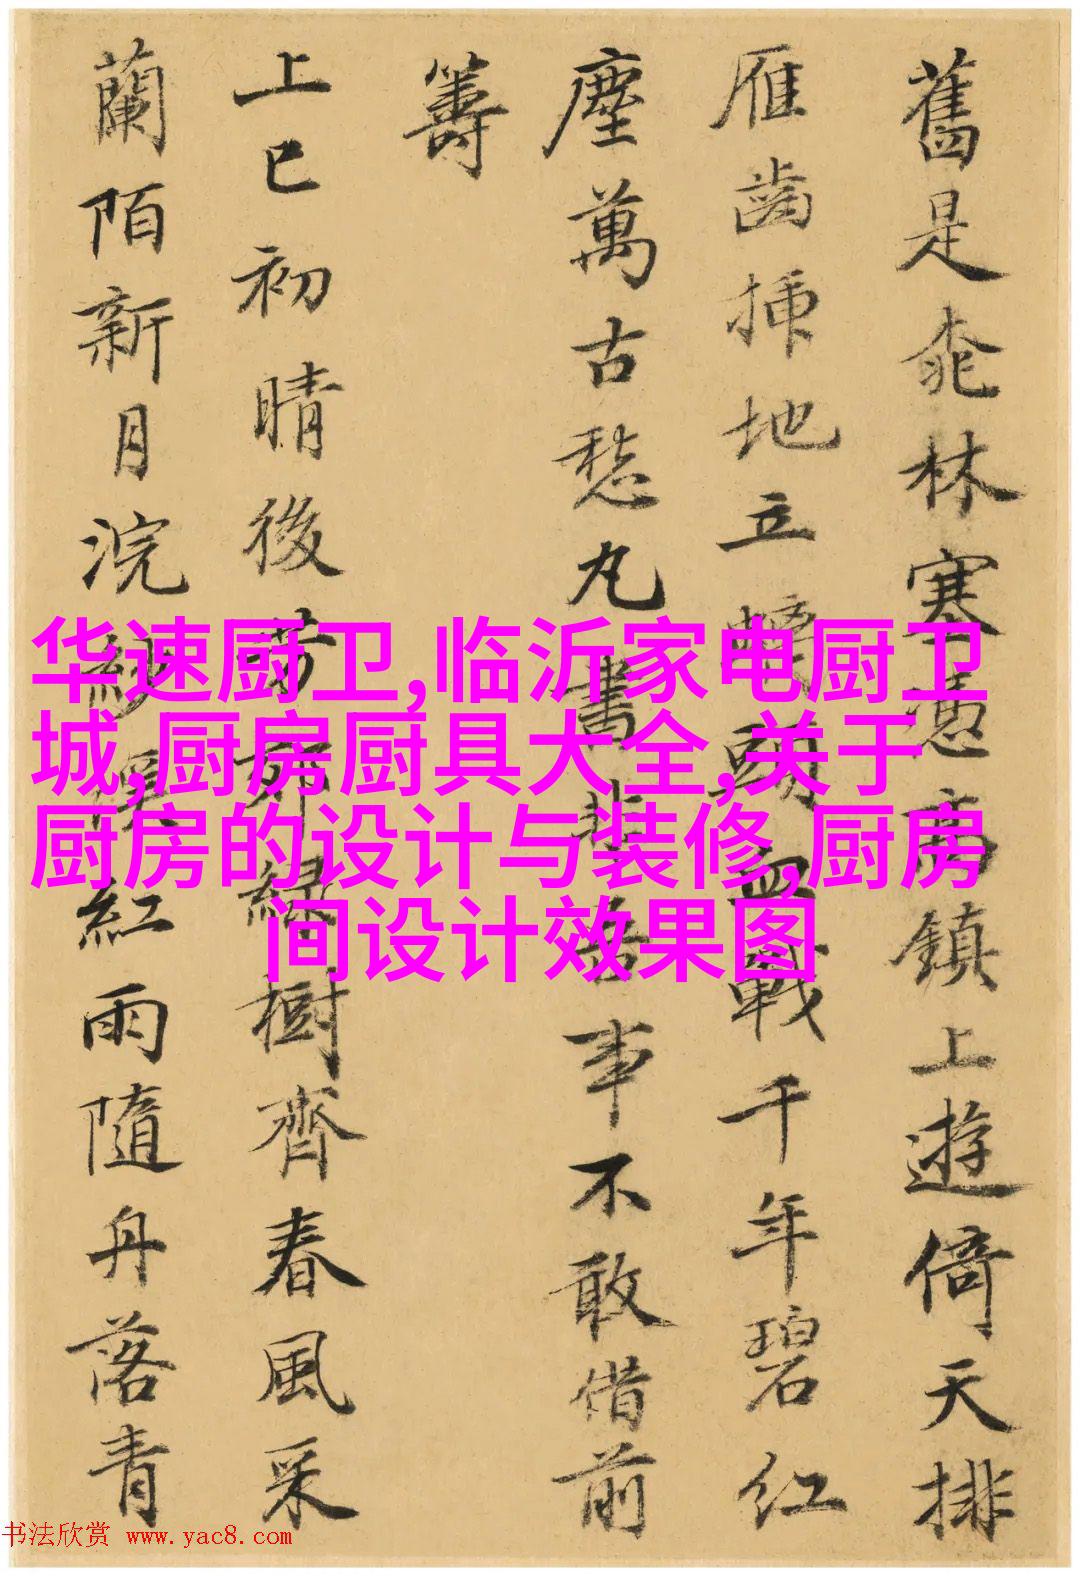 舊是桃林塞憑高鎮上遊倚天排
雁齒揷地立頭血戰千年碧紅
塵萬古愁丸書非吾事不敢借前
籌
上巳初晴後芳郊緑樹齊春風采
蘭陌新月浣紗溪紅雨隨舟落青
华速厨卫,临沂家电厨卫
城,厨房厨具大全,关于
厨房的设计与装修,厨房
间设计效果图
书法欣赏 www.yac8.com